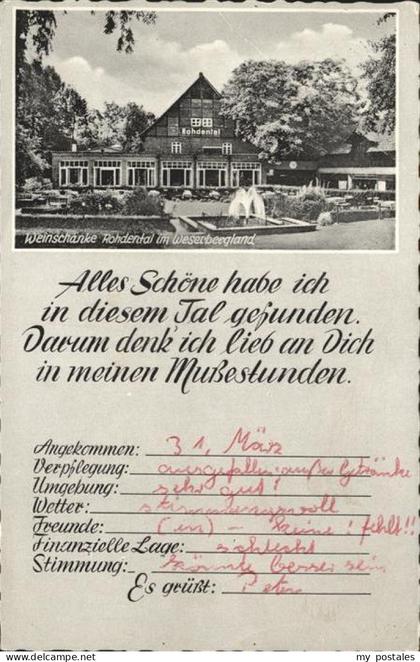 Rohdental
Weinschänke Rohdental im Weserbergland
Alles Schöne habe ich
in diesem Tal gefunden.
Darum denk' ich lieb an Dich
in meinen Mußestunden.
Angekommen: 31. März
Verpflegung: ausgefallen: außer Getränke
Umgebung: sehr gut!
Wetter: stimmungsvoll
Freunde: (in) - keine! fehlt!!
Finanzielle Lage: schlecht
Stimmung: könnte besser sein
Es grüßt: Peter
my postales